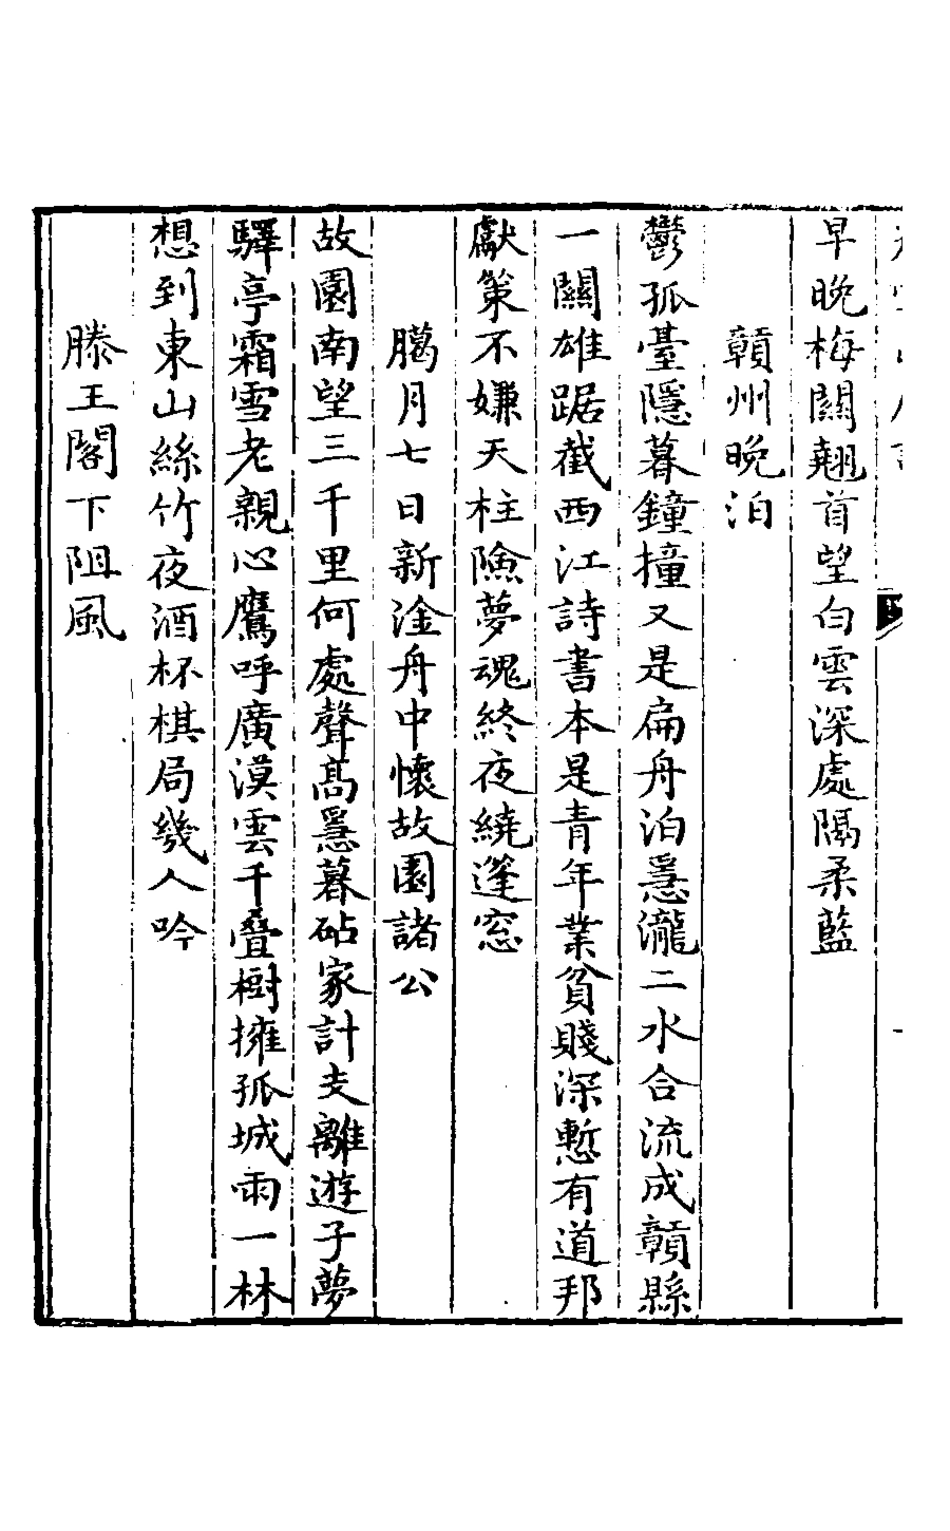 早晚梅關翹首望白雲深處隔柔藍
贛州晚泊
鬱孤臺隱暮鐘撞又是扁舟泊惡瀧二水合流成贛縣
一關雄踞截西江詩書本是青年業貧賤深慙有道邦
獻策不嫌天柱險夢魂終夜繞篷窓
臈月七日新淦舟中懷故園諸公
故園南望三千里何處聲髙惡暮砧家計支離遊子夢
驛亭霜雪老親心鷹呼廣漠雲千叠樹擁孤城雨一林
想到東山絲竹夜酒杯棋局幾人吟
滕王閣下阻風